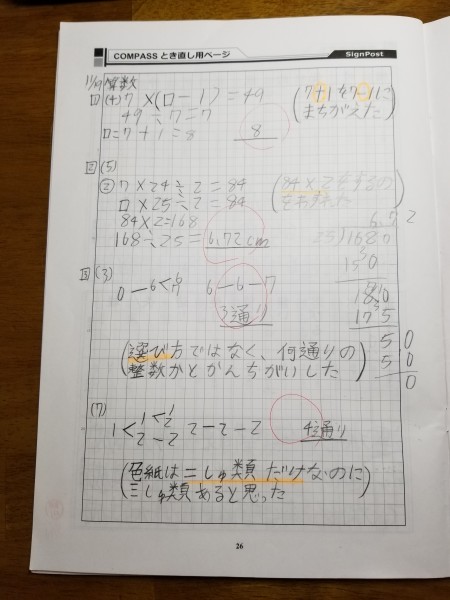 COMPASS とき直し用ページ
SignPost
11/19 算数
1 (4) 7×(ロ-1)=49
49÷7=7
ロ=7+1=8
8
(7+1を7-1に
まちがえた)
2 (5)
② 7×24÷2=84
ロ×25÷2=84
84×2=168
168÷25=6.72cm
(84×2をするの
をわすれた)
6.72
25)1680
150
180
175
50
50
0
3 (3)
0-6<6
6-6-7
3通り
(選び方ではなく、何通りの
整数かとかんちがいした)
(7)
1<1<1
2
2-2
2-2-2
4通り
(色紙は二しゅ類だけなのに
三しゅ類あると思った)
26